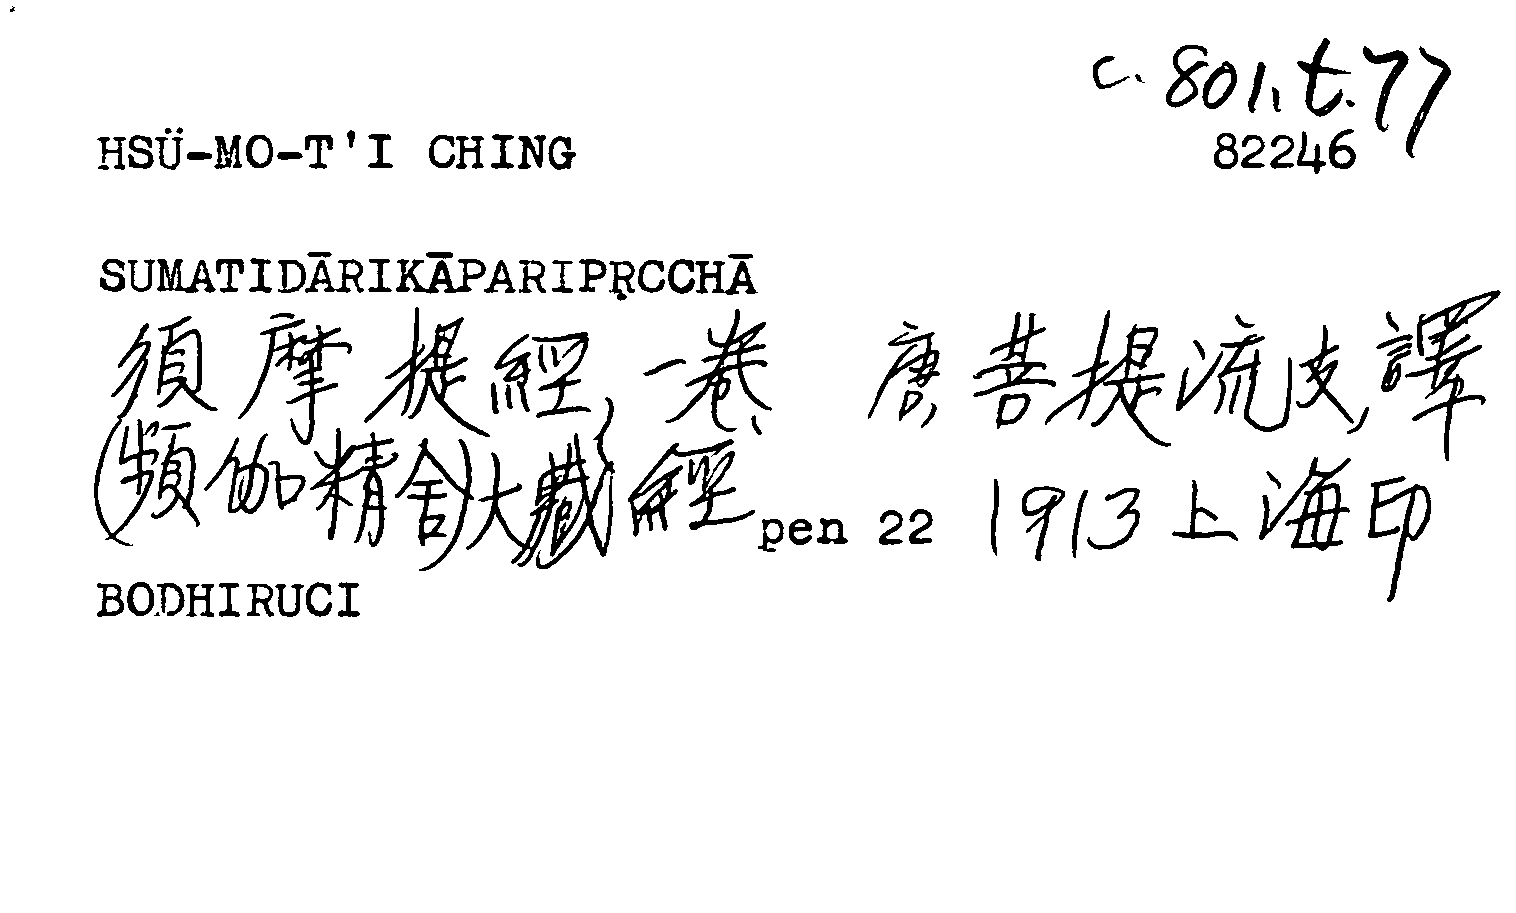 c. 801. t. 77
HSÜ-MO-T'I CHING 82246
SUMATIDĀRIKĀPARIPṚCCHĀ
須摩提經, 一卷、 唐, 菩提流支, 譯
(頻伽精舍)大藏經 pen 22 1913 上海印
BODHIRUCI